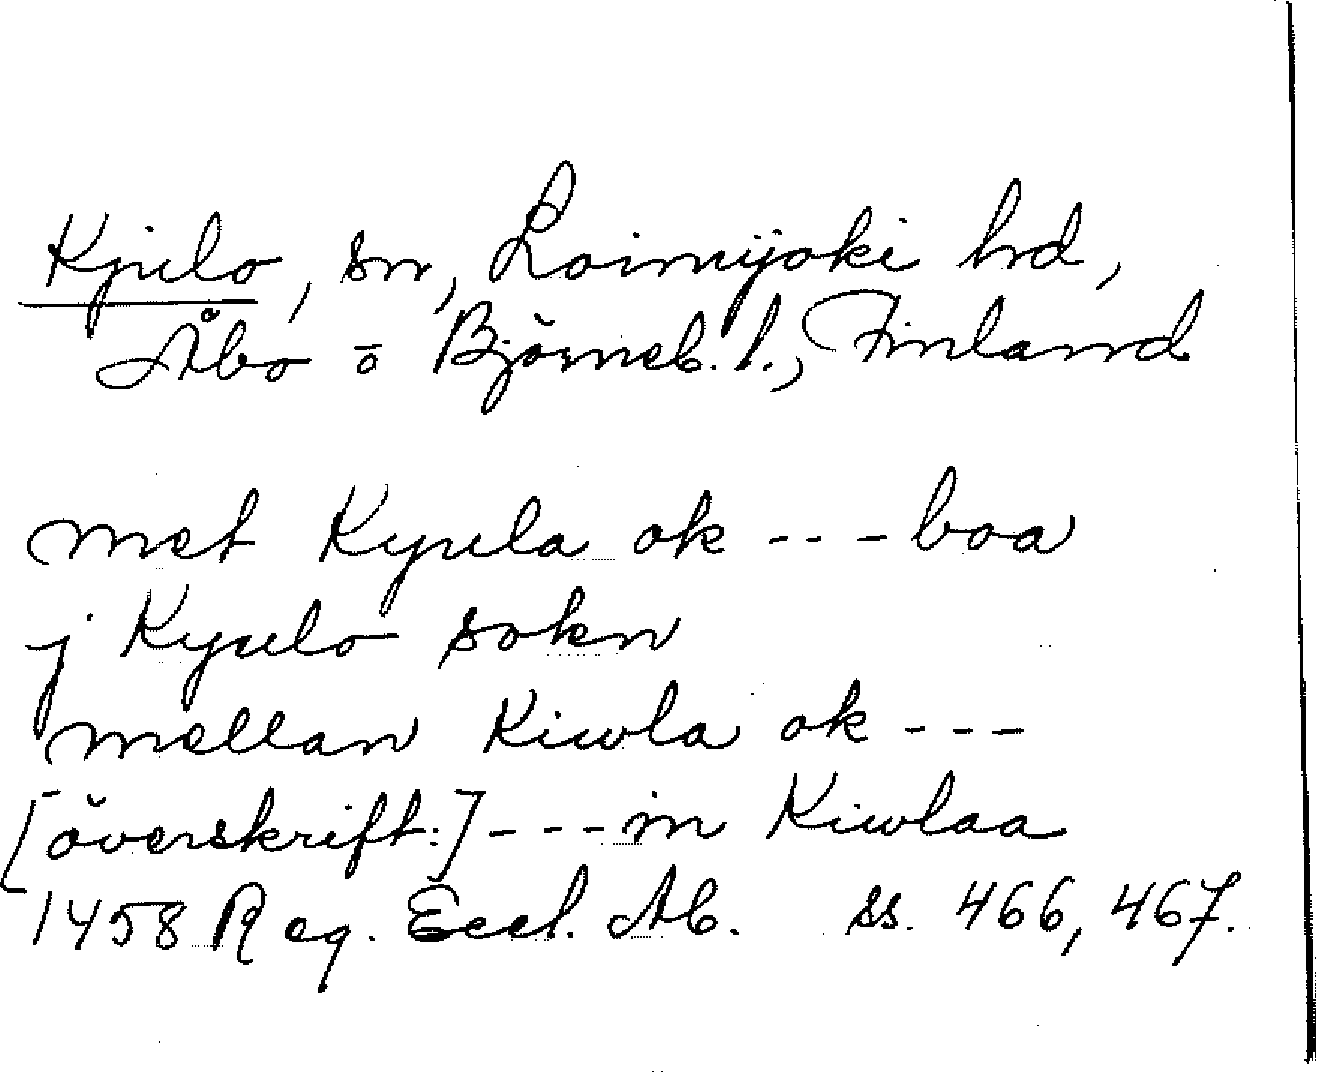 Kjulo, sn, Loimijoki hd,
Åbo o Björneb. l., Finland
met Kyula ok --- boa
j Kyulo sokn
mellan Kiwla ok ---
[överskrift:] --- in Kiwlaa
1458 Reg. Eccl. Ab. ss. 466, 467.